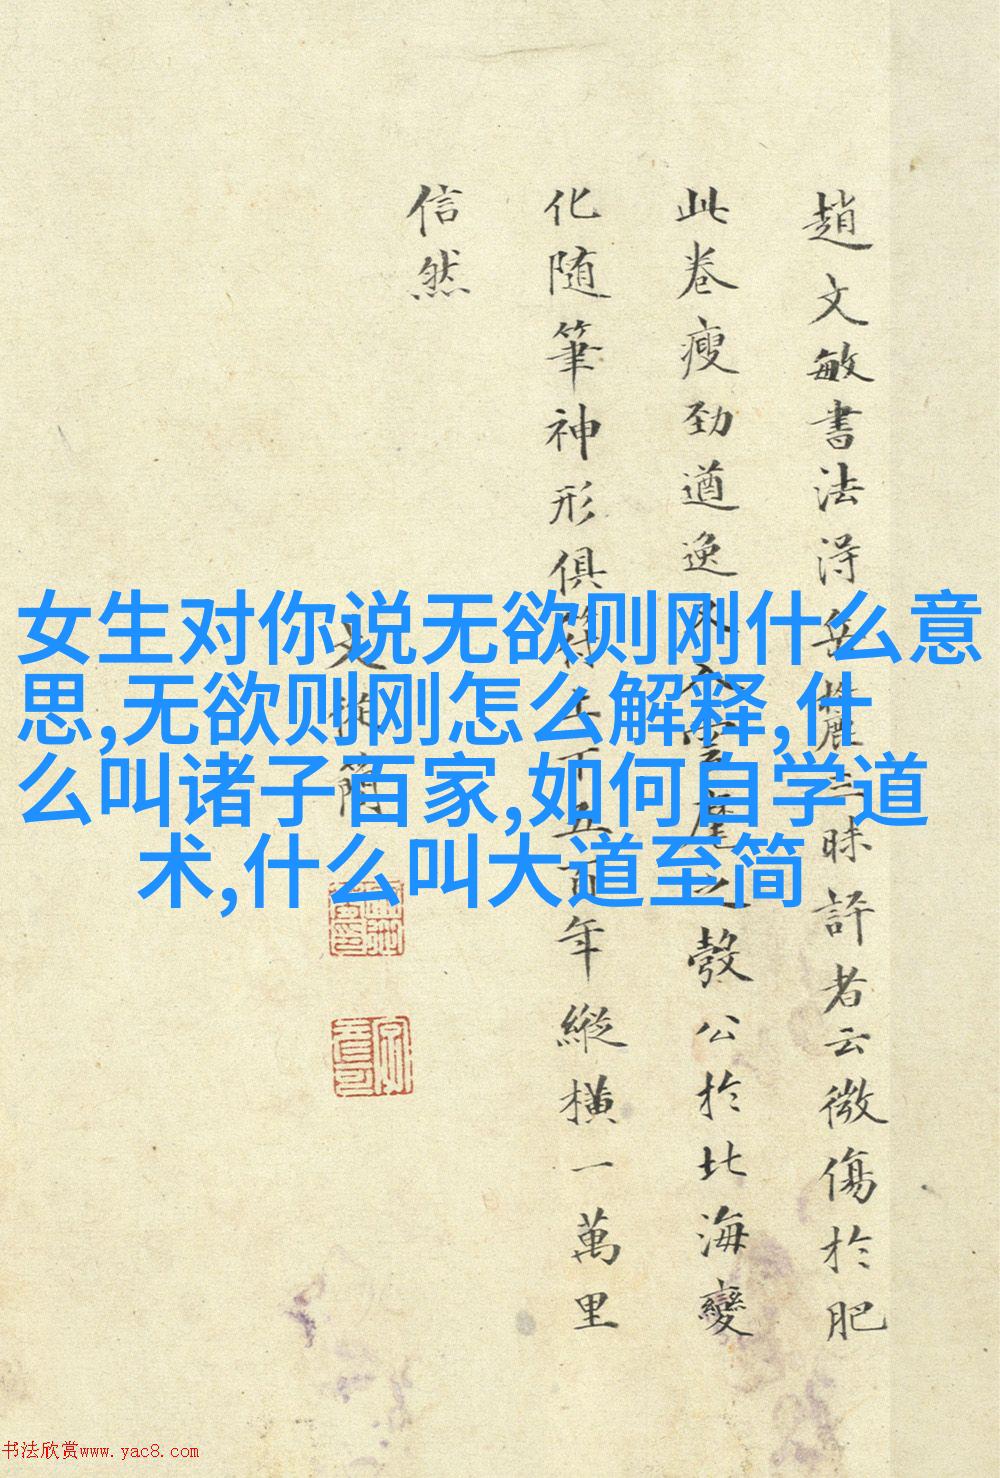 女生对你说无欲则刚什么意
思,无欲则刚怎么解释,什
么叫诸子百家,如何自学道
术,什么叫大道至简
趙文敏書法得岳麓三昧評者云微傷於肥
此卷瘦劲遒逸又入雲麾之彀公於北海變
化随筆神形俱得上下五百年縱橫一萬里
信然
文從簡
书法欣赏www.yac8.com